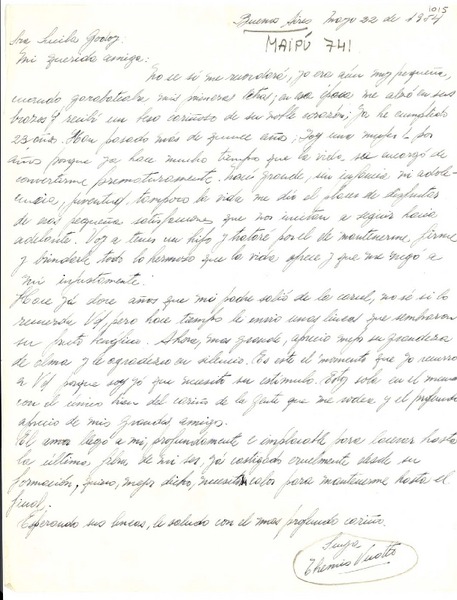 1015
Buenos Aires Mayo 22 de 1954
MAIPÚ 741
Sra Lucila Godoy:
Mi querida amiga:
No se si me recordará, yo era aún muy pequeña,
cuando garabateaba mis primeras letras; en esa época me alzó en sus
brazos y recibí un beso cariñoso de su noble corazón; Ya he cumplido
23 años. Han pasado más de quince años; Soy una mujer
años porque ya hace mucho tiempo que la vida, se encargó de
convertirme prematuramente. Nací grande, sin infancia ni adole-
cencia, juventud, tampoco la vida me dio el placer de disfrutar
de esas pequeñas satisfacciones que nos invitan a seguir hacia
adelante. Voy a tener un hijo y trataré por el de mantenerme firme
y brindarle todo lo hermoso que la vida ofrece y que me negó a
mi injustamente.
Hace ya doce años que mi padre salió de la carcel, no sé si lo
recuerda Vd, pero hace tiempo le envio unas lineas que sembraron
su fruto Ahora, mas grande, aprecio mejor su grandeza
de alma y le agradezco en silencio. Es este el momento que yo recurro
a Vd porque soy yo que necesito su estimulo. Estoy sola en el mundo
con el único bien del cariño de la gente que me rodea y el profundo
aprecio de mis grandes amigos.
El amor llegó a mi, profundamente e implacable para lacerar hasta
la última fibra de mi ser, ya castigado cruelmente desde su
formación, quiero, mejor dicho, necesito valor para mantenerme hasta el
final.
Esperando sus lineas, le saludo con el mas profundo cariño.
Suya
Themis